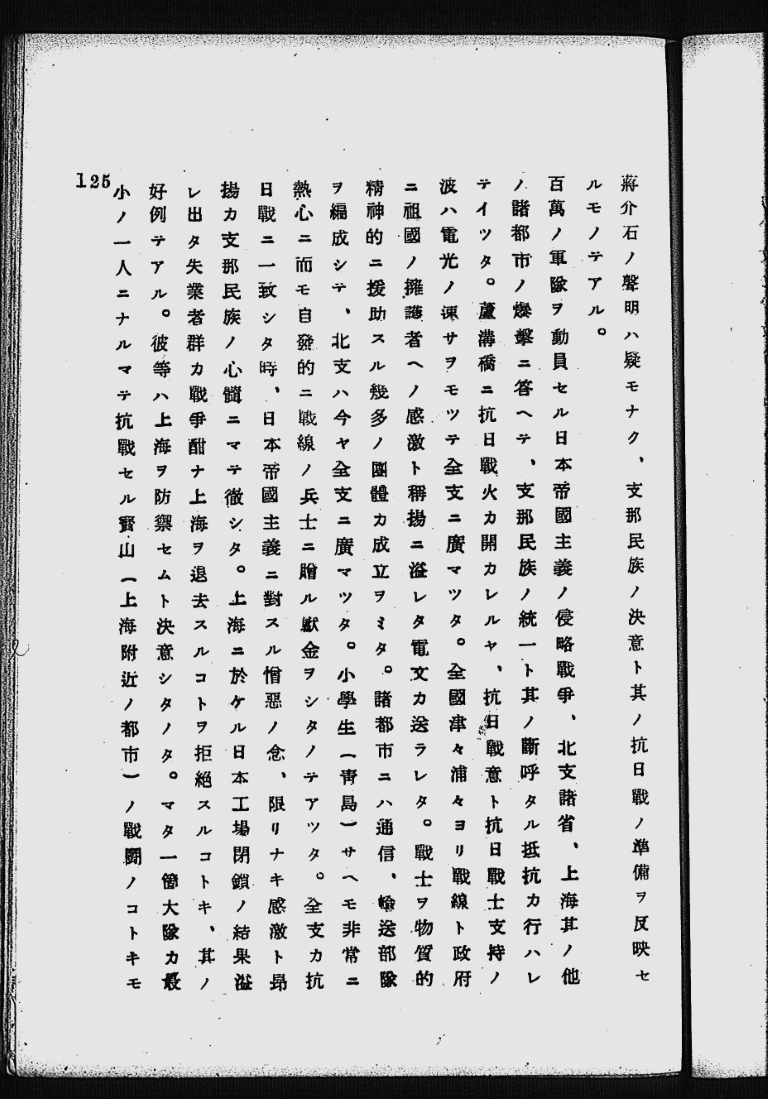 蔣介石ノ聲明ハ疑モナク、支那民族ノ決意ト其ノ抗日戰ノ準備ヲ反映セ
ルモノテアル。
百萬ノ軍隊ヲ動員セル日本帝國主義ノ侵略戰爭、北支諸省、上海其ノ他
ノ諸都市ノ爆擊ニ答ヘテ、支那民族ノ統一ト其ノ斷呼タル抵抗カ行ハレ
テイツタ。蘆溝橋ニ抗日戰火カ開カレルヤ、抗日戰意ト抗日戰士支持ノ
波ハ電光ノ速サヲモツテ全支ニ廣マツタ。全國津々浦々ヨリ戰線ト政府
ニ祖國ノ擁護者ヘノ感激ト稱揚ニ溢レタ電文カ送ラレタ。戰士ヲ物質的
精神的ニ援助スル幾多ノ團體カ成立ヲミタ。諸都市ニハ通信、輸送部隊
ヲ編成シテ、北支ハ今ヤ全支ニ廣マツタ。小學生(青島)サヘモ非常ニ
熱心ニ而モ自發的ニ戰線ノ兵士ニ贈ル獻金ヲシタノテアツタ。全支カ抗
日戰ニ一致シタ時、日本帝國主義ニ對スル憎惡ノ念、限リナキ感激ト昂
揚カ支那民族ノ心髓ニマテ徹シタ。上海ニ於ケル日本工場閉鎖ノ結果溢
レ出タ失業者群カ戰爭酣ナ上海ヲ退去スルコトヲ拒絕スルコトキ、其ノ
好例テアル。彼等ハ上海ヲ防禦セムト決意シタノタ。マタ一箇大隊カ最
小ノ一人ニナルマテ抗戰セル寶山(上海附近ノ都市)ノ戰鬪ノコトキモ
125